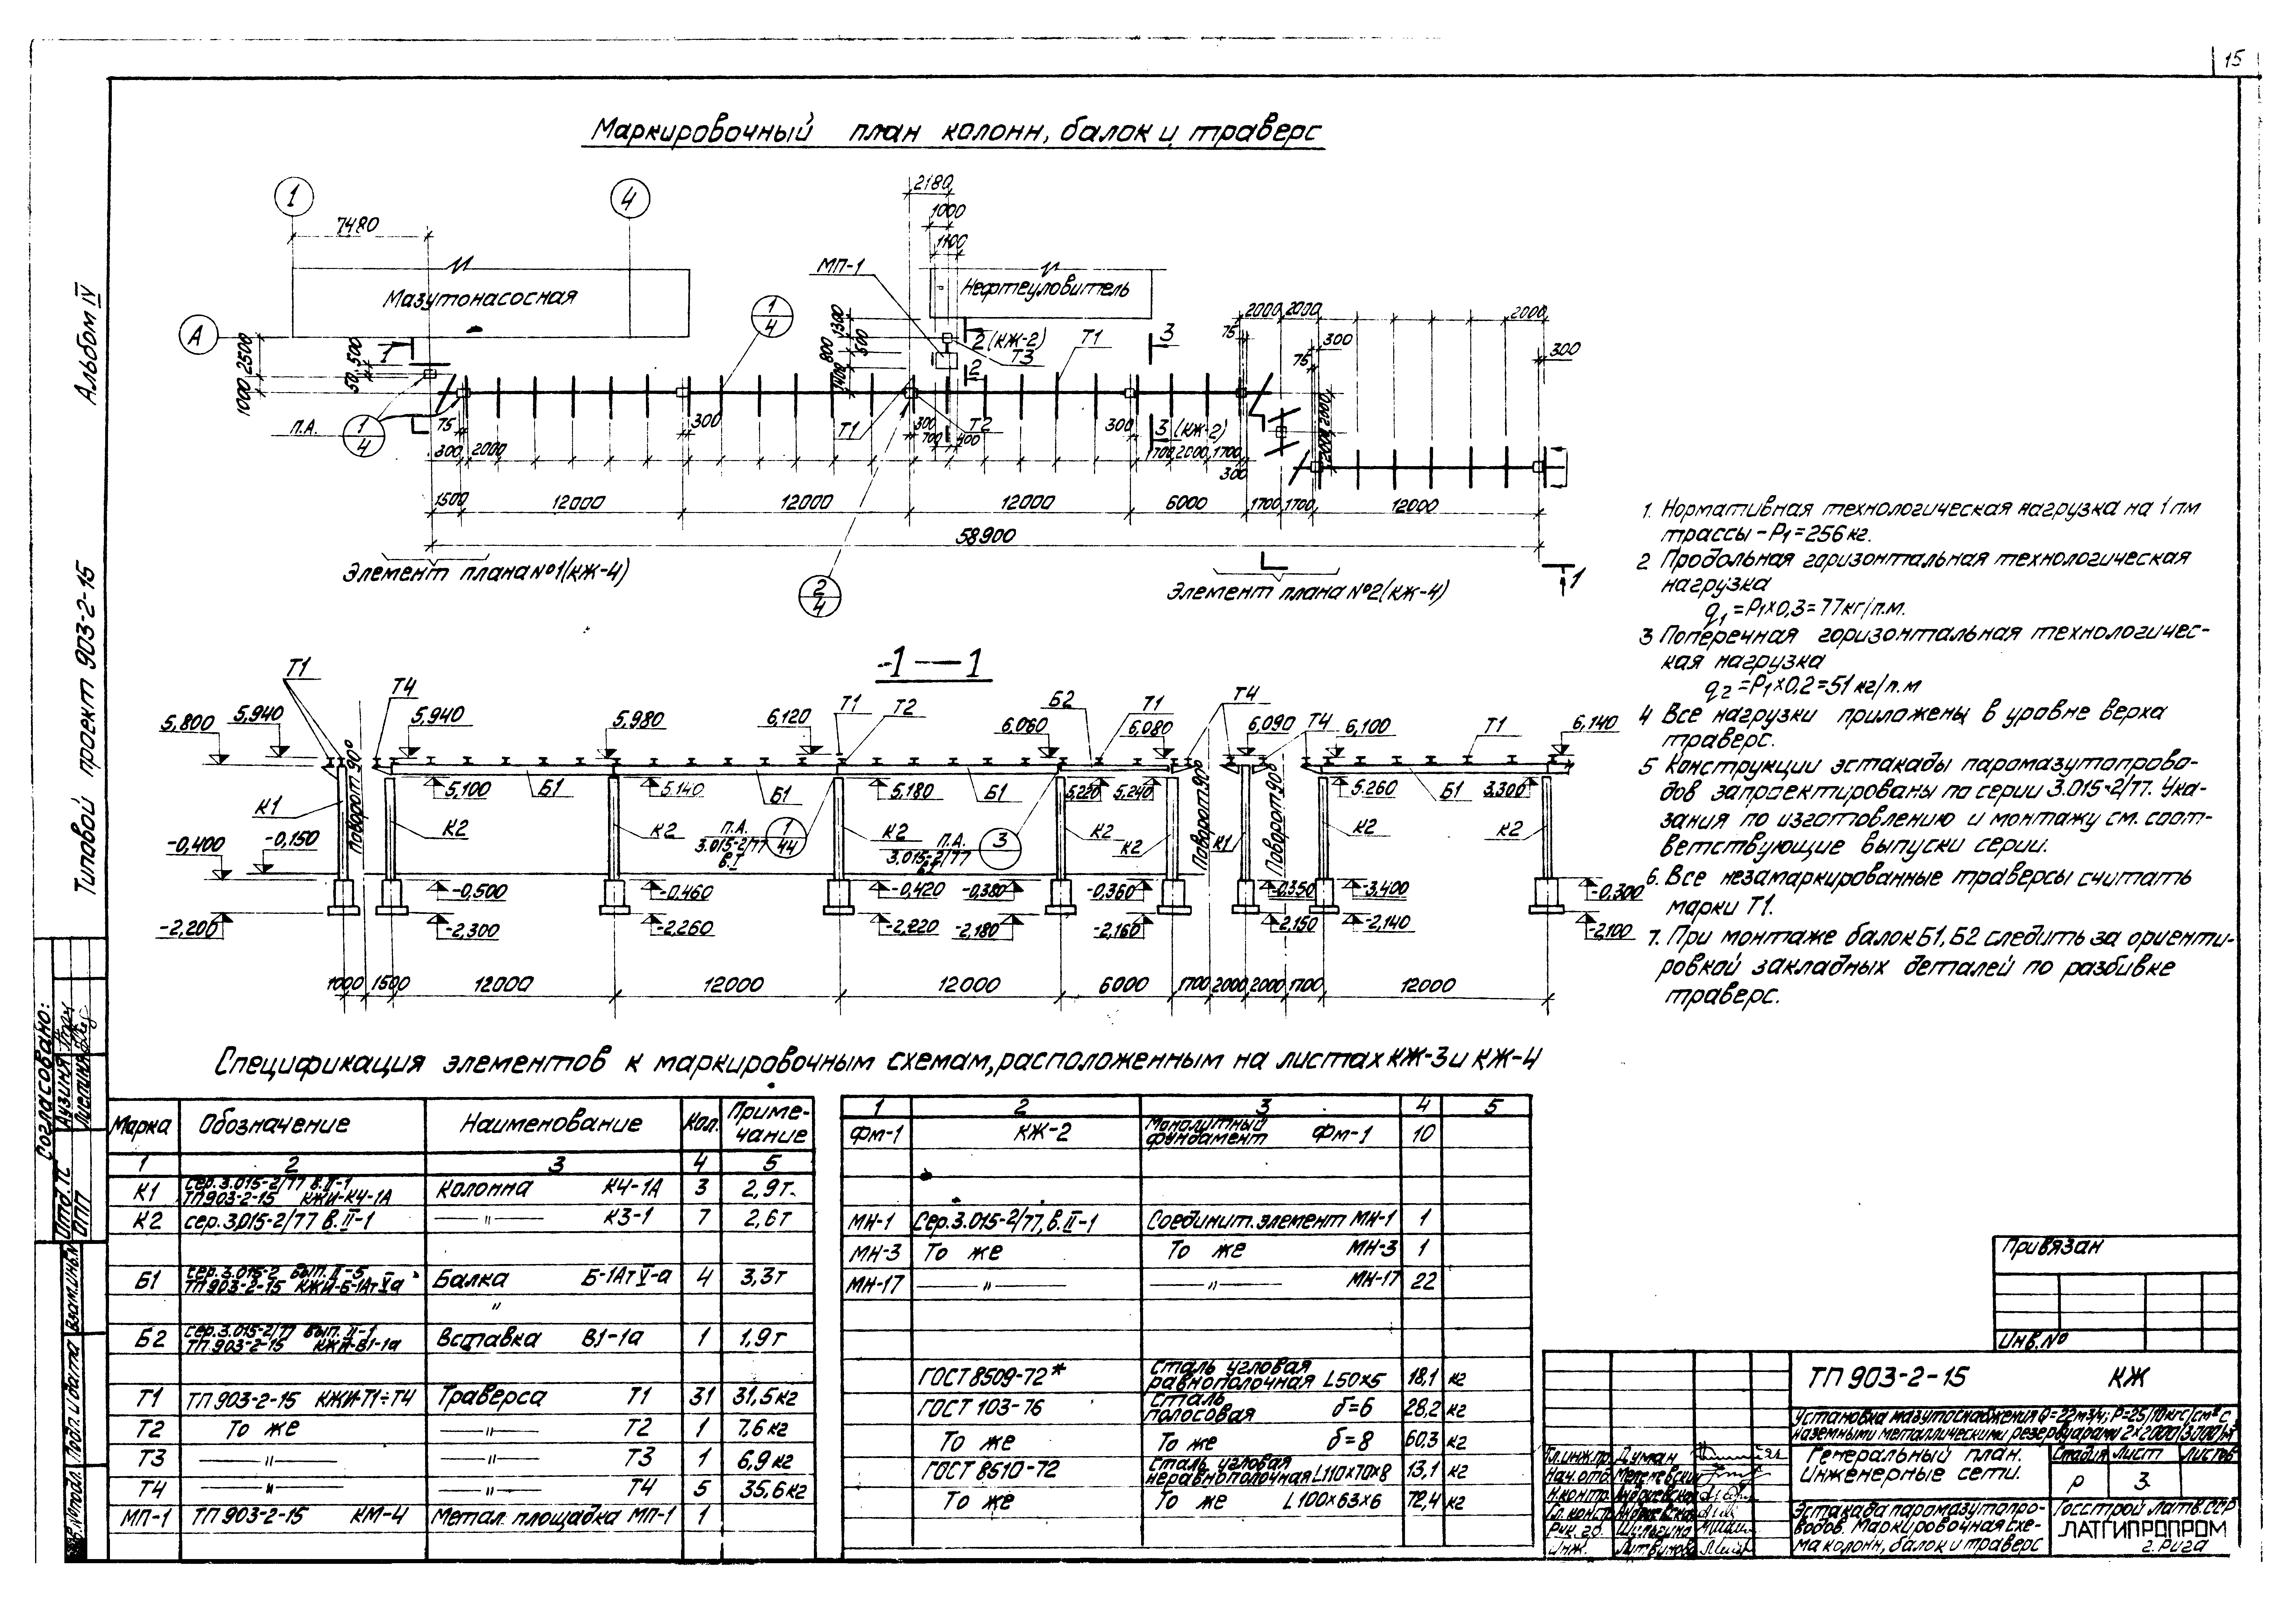 15
Маркировочный план колонн, балок и траверс
Альбом IV
Типовой проект 903-2-15
1
4
А
7480
2180
1000
1100
МП-1
Мазутонасосная
Нефтеуловитель
1
4
2 (КЖ-2)
Т3
Т1
3
2000 2000
2000
75
300
75
300
2500
1000
500
50
1
1300
800
500
1400
2
П.А.
1
4
75
300
300 2000
Т1
300
700
400
Т2
300
3 (КЖ-2)
1700 2000 1700
300
2000 2000
1500
12000
12000
12000
6000
1700 1700
12000
58900
Элемент плана №1 (КЖ-4)
2
4
Элемент плана №2 (КЖ-4)
1
1. Нормативная технологическая нагрузка на 1 пм
трассы – Р1 = 256 кг.
2 Продольная горизонтальная технологическая
нагрузка
q1 = Р1х0,3 = 77 кг/п.м.
3 Поперечная горизонтальная технологичес-
кая нагрузка
q2 = Р1х0,2 = 51 кг/п.м
4 Все нагрузки приложены в уровне верха
траверс.
5 Конструкции эстакады паромазутопрово-
дов запроектированы по серии 3.015-2/77. Ука-
зания по изготовлению и монтажу см. соот-
ветствующие выпуски серии.
6. Все незамаркированные траверсы считать
марки Т1.
7. При монтаже балок Б1, Б2 следить за ориенти-
ровкой закладных деталей по разбивке
траверс.
1—1
Т1
Т4
Т1
Т2
Б2
Т1
Т4
Т4
Т1
5,800
5,940
5,940
5,980
6,120
6,060
6,080
6,090
6,100
6,140
Поворот 90°
5,100
Б1
5,140
Б1
5,180
Б1
5,220
5,240
Поворот 90°
Поворот 90°
5.260
Б1
3.300
К1
К2
К2
К2
К2
К2
К1
К2
К2
П.А.
3.015-2/77
в.I
1
44
П.А.
3.015-2/77
3
-0,400
-0,150
-0,500
-0.460
-0,420
-0,380
-0,360
-0.350
-3,400
-0,300
-2,200
-2,300
-2,260
-2,220
-2,180
-2,160
-2,150
-2,140
-2,100
1000 1500
12000
12000
12000
6000
1700 2000 2000 1700
12000
Спецификация элементов к маркировочным схемам, расположенным на листах КЖ-3 и КЖ-4
Марка Обозначение Наименование Кол. Приме-
чание
1 2 3 4 5
К1 сер. 3.015-2/77 в. II-1
ТП 903-2-15 КЖИ-К4-1А Колонна К4-1А 3 2,9 т.
К2 сер. 3.015-2/77 в. II-1 —"— К3-1 7 2,6 т
Б1 сер. 3.015-2 вып. II-5
ТП 903-2-15 КЖИ-Б-1Ат V-а Балка Б-1Ат V-а 4 3,3 т
"
Б2 сер. 3.015-2/77 вып. II-1
ТП 903-2-15 КЖИ-В1-1а Вставка В1-1а 1 1,9 т
Т1 ТП 903-2-15 КЖИ-Т1÷Т4 Траверса Т1 31 31,5 кг
Т2 То же —"— Т2 1 7,6 кг
Т3 —"— —"— Т3 1 6,9 кг
Т4 —"— —"— Т4 5 35,6 кг
МП-1 ТП 903-2-15 КМ-4 Метал. площадка МП-1 1
1 2 3 4 5
Фм-1 КЖ-2 Монолитный
фундамент Фм-1 10
МН-1 Сер. 3.015-2/77, в. II-1 Соединит. элемент МН-1 1
МН-3 То же То же МН-3 1
МН-17 —"— —"— МН-17 22
ГОСТ 8509-72* Сталь угловая
равнополочная L50х5 18,1 кг
ГОСТ 103-76 Сталь
полосовая δ=6 28,2 кг
То же То же δ=8 60,3 кг
ГОСТ 8510-72 Сталь угловая
неравнополочная L110х70х8 13,1 кг
То же То же L100х63х6 72,4 кг
Привязан
Инв. №
ТП 903-2-15 КЖ
Установка мазутоснабжения Q=22м3/ч; Р=25/10кгс/см² с
наземными металлическими резервуарами 2х2000(3000)м³
Генеральный план.
Инженерные сети.
Стадия Лист Листов
Р 3
Эстакада паромазутопро-
водов. Маркировочная схе-
ма колонн, балок и траверс
Госстрой Латв.ССР
ЛАТГИПРОПРОМ
г. Рига
Гл. инж. пр. Думан
Нач. отд.
Н. контр.
Гл. констр.
Рук. гр.
Инж. Литвинова
Согласовано:
Отд. ТС
ОПП
Взам. инв. №
Подп. и дата
Инв. № подл.